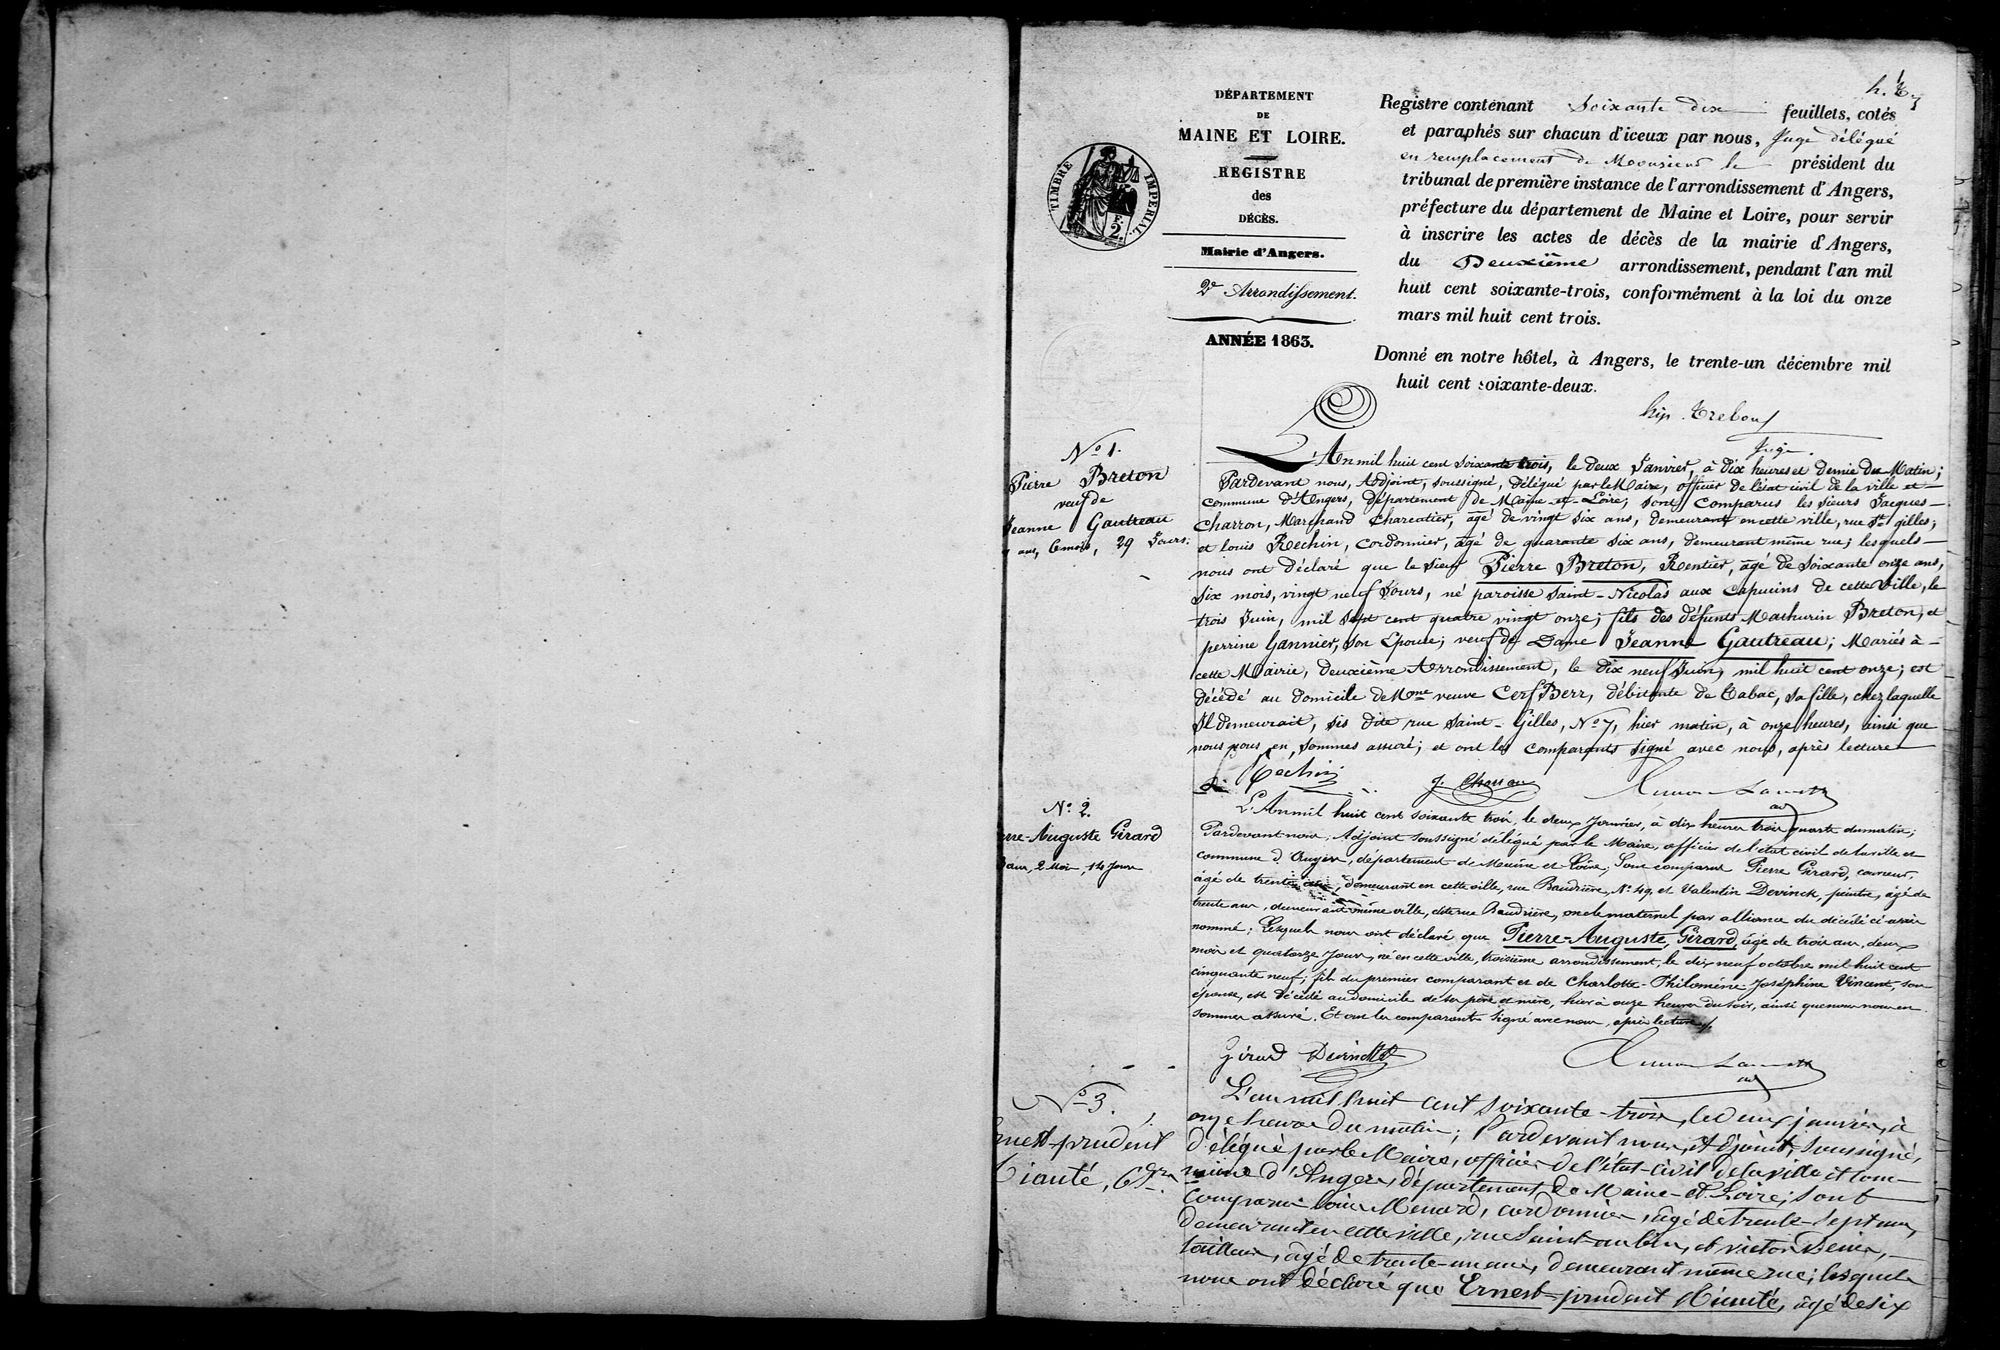 DÉPARTEMENT
DE
MAINE ET LOIRE.
REGISTRE
des
DÉCÈS.
Mairie d'Angers.
2e Arrondissement.
ANNÉE 1863.
TIMBRE IMPÉRIAL.
F.
2.
Registre contenant soixante dix feuillets, cotés
et paraphés sur chacun d'iceux par nous, Juge délégué
en remplacement de Monsieur le président du
tribunal de première instance de l'arrondissement d'Angers,
préfecture du département de Maine et Loire, pour servir
à inscrire les actes de décès de la mairie d'Angers,
du Deuxième arrondissement, pendant l'an mil
huit cent soixante-trois, conformément à la loi du onze
mars mil huit cent trois.
Donné en notre hôtel, à Angers, le trente-un décembre mil
huit cent soixante-deux.
Juge.
No 1.
Pierre Breton
veuf de
Jeanne Gautreau
ans, 6 mois, 29 Jours.
L'An mil huit cent soixante trois, le deux Janvier, à dix heures et demie du Matin;
Pardevant nous, Adjoint, soussigné, délégué par le Maire, officier de l'état civil de la ville et
commune d'Angers, département de Maine-et-Loire; sont comparus les sieurs Jacques
Charron, Marchand Charcutier, âgé de vingt six ans, demeurant en cette ville, rue St gilles;
et louis Réchin, Cordonnier, âgé de quarante six ans, demeurant même rue; lesquels
nous ont déclaré que le sieur Pierre Breton, Rentier, âgé de soixante onze ans,
six mois, vingt neuf Jours, né paroisse Saint-Nicolas aux Capucins de cette Ville, le
trois Juin, mil sept cent quatre vingt onze; fils des défunts Mathurin Breton, et
perrine Gannier, son Epouse; veuf de Dame Jeanne Gautreau; Mariés à
cette Mairie, deuxième Arrondissement, le dix neuf Juin, mil huit cent onze; est
décédé au domicile de Mme veuve Cerf Berr, débitante de Tabac, sa fille, chez laquelle
Il demeurait, sis dite rue Saint-Gilles, No 7, hier matin, à onze heures, ainsi que
nous nous en sommes assuré; et ont les comparants signé avec nous, après lecture
Réchin J. Charron
No 2.
Pierre-Auguste Girard
ans, 2 Mois, 14 Jours
L'An mil huit cent soixante trois, le deux Janvier, à dix heures trois quarts du matin;
Pardevant nous, Adjoint soussigné délégué par le Maire, officier de l'état civil de la ville et
commune d'Angers, département de Maine et Loire; Sont comparus Pierre Girard, couvreur,
âgé de trente ans, demeurant en cette ville, rue Baudrière, No 49, et Valentin Devinck, peintre, âgé de
trente ans, demeurant même ville, dite rue Baudrière, oncle maternel par alliance du décédé ci-après
nommé; Lesquels nous ont déclaré que Pierre-Auguste Girard, âgé de trois ans, deux
mois et quatorze jours, né en cette ville, troisième arrondissement, le dix neuf octobre mil huit cent
cinquante neuf; fils du premier comparant et de Charlotte-Philomène Joséphine Vincent, son
épouse, est décédé au domicile de ses père et mère, hier à onze heures du soir, ainsi que nous nous en
sommes assuré. Et ont les comparants signé avec nous, après lecture
Girard Devinck
No 3.
Ernest-prudent
6 Jrs
L'an mil huit cent soixante-trois, le deux janvier, à
onze heures du matin; Pardevant nous, Adjoint, soussigné,
délégué par le Maire, officier de l'état-civil de la ville et com-
mune d'Angers, département de Maine-et-Loire; sont
comparus Louis Menard, cordonnier, âgé de trente-sept ans,
demeurant en cette ville, rue Saint-aubin, et victor
tailleur, âgé de trente-un ans, demeurant même rue; lesquels
nous ont déclaré que Ernest-prudent âgé de six